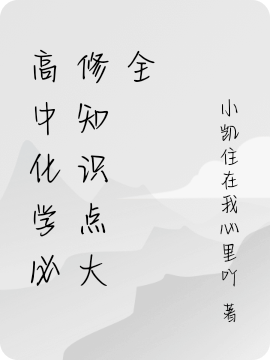 高中化学必
修知识点大
全
小凯住在我心里吖 著